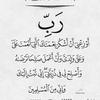 رَبِّ
أَوْزِعْنِي أَنْ أَشْكُرَ نِعْمَتَكَ الَّتِي أَنْعَمْتَ عَلَيَّ
وَعَلَىٰ وَالِدَيَّ وَأَنْ أَعْمَلَ صَالِحًا تَرْضَاهُ
وَأَصْلِحْ لِي فِي ذُرِّيَّتِي إِنِّي تُبْتُ إِلَيْكَ
وَإِنِّي مِنَ الْمُسْلِمِينَ